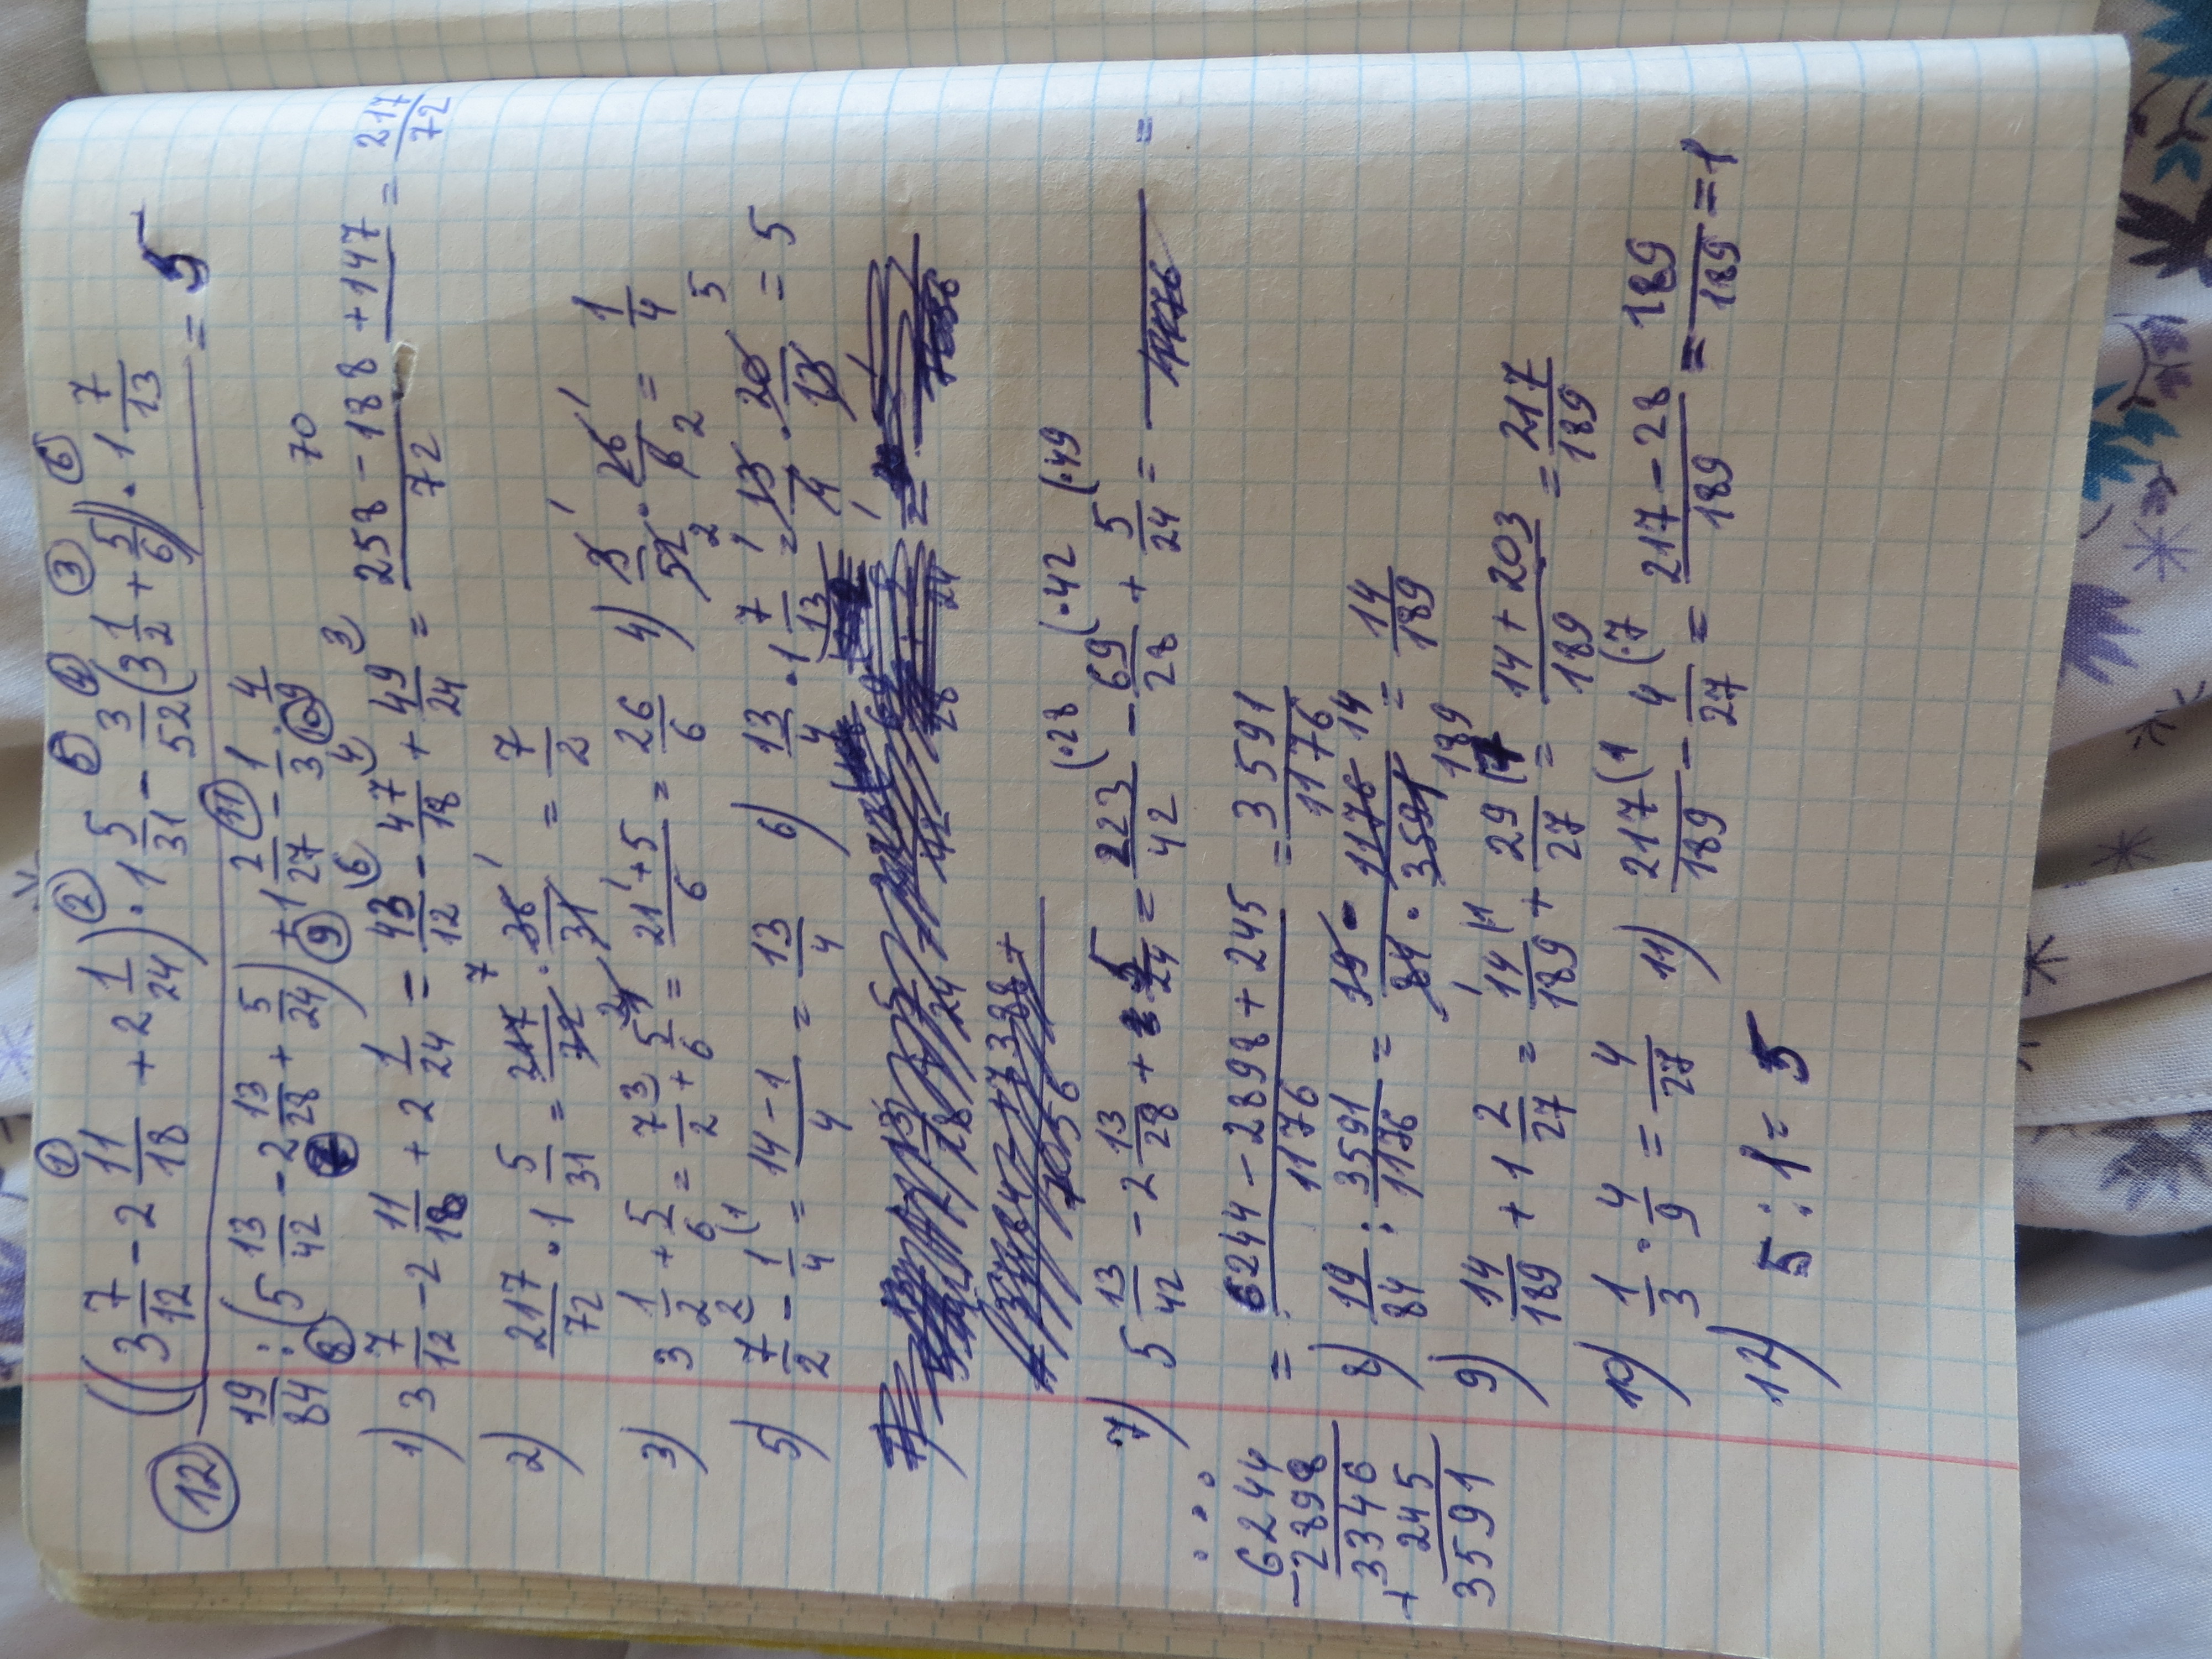 12) ((3 7/12 - 2 11/18 + 2 1/24) · 1 5/31 - 3/52 (3 1/2 + 5/6)) · 1 7/13
19/84 : (5 13/42 - 2 13/28 + 5/24) + 1 2/27 - 1/3 · 4/9 = 5
1) 3 7/12 - 2 11/18 + 2 1/24 = 43/12 (6 - 47/18 (4 + 49/24 (3 = 258 - 188 + 147 / 72 = 217/72
70
2) 217/72 · 1 5/31 = 217/72 · 36/31 = 7/2
3) 3 1/2 + 5/6 = 7/2 (3 + 5/6 = 21 + 5 / 6 = 26/6
4) 3/52 · 26/6 = 1/4
5) 7/2 (2 - 1/4 (1 = 14 - 1 / 4 = 13/4
6) 13/4 · 1 7/13 = 13/4 · 20/13 = 5
7) 5 13/42 - 2 13/28 + 5/24 = 223/42 (·28 - 69/28 (·42 + 5/24 (·49 = /1176 =
= 6244 - 2898 + 245 / 1176 = 3591/1176
6244
- 2898
3346
+ 245
3591
8) 19/84 : 3591/1176 = 19 · 1176 / 84 · 3591 = 14/189
9) 14/189 + 1 2/27 = 14/189 (1 + 29/27 (7 = 14 + 203 / 189 = 217/189
10) 1/3 · 4/9 = 4/27
11) 217/189 (1 - 4/27 (·7 = 217 - 28 / 189 = 189/189 = 1
12) 5 : 1 = 5